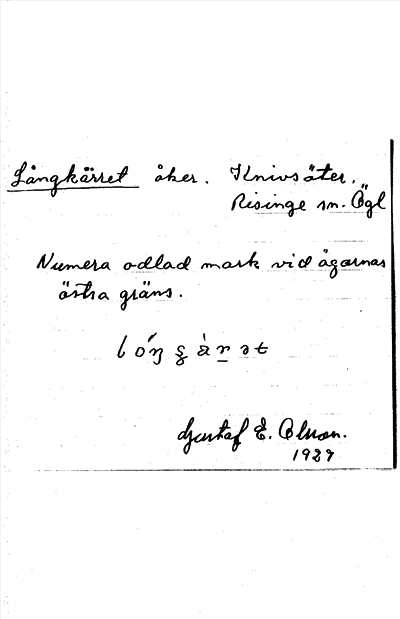 Långkärret åker. Knivsäter.
Risinge sn. Ögl
Numera odlad mark vid ägornas
östra gräns.
Gustaf E. Olsson.
1929